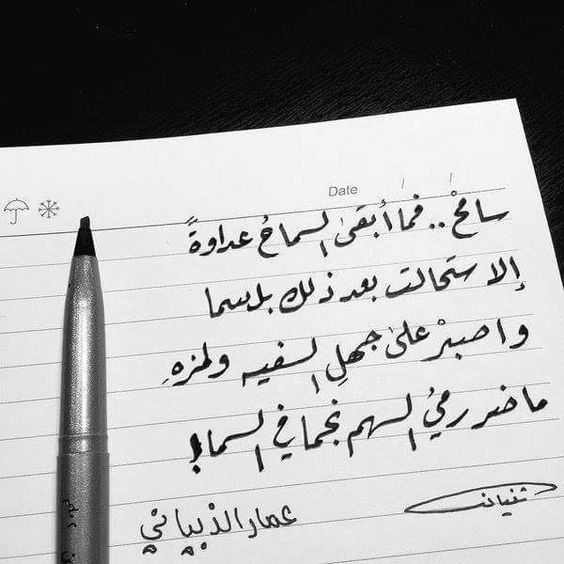 Date / /
سامحْ.. فما أبقىٰ السماحُ عداوةً
إلا ستحالت بعد ذلك بلسما
واصبرْ علىٰ جهلِ السفيه ولمزهِ
ما ضر رميُ السهم نجما في السماء
ثنيان
عمار الذبياني